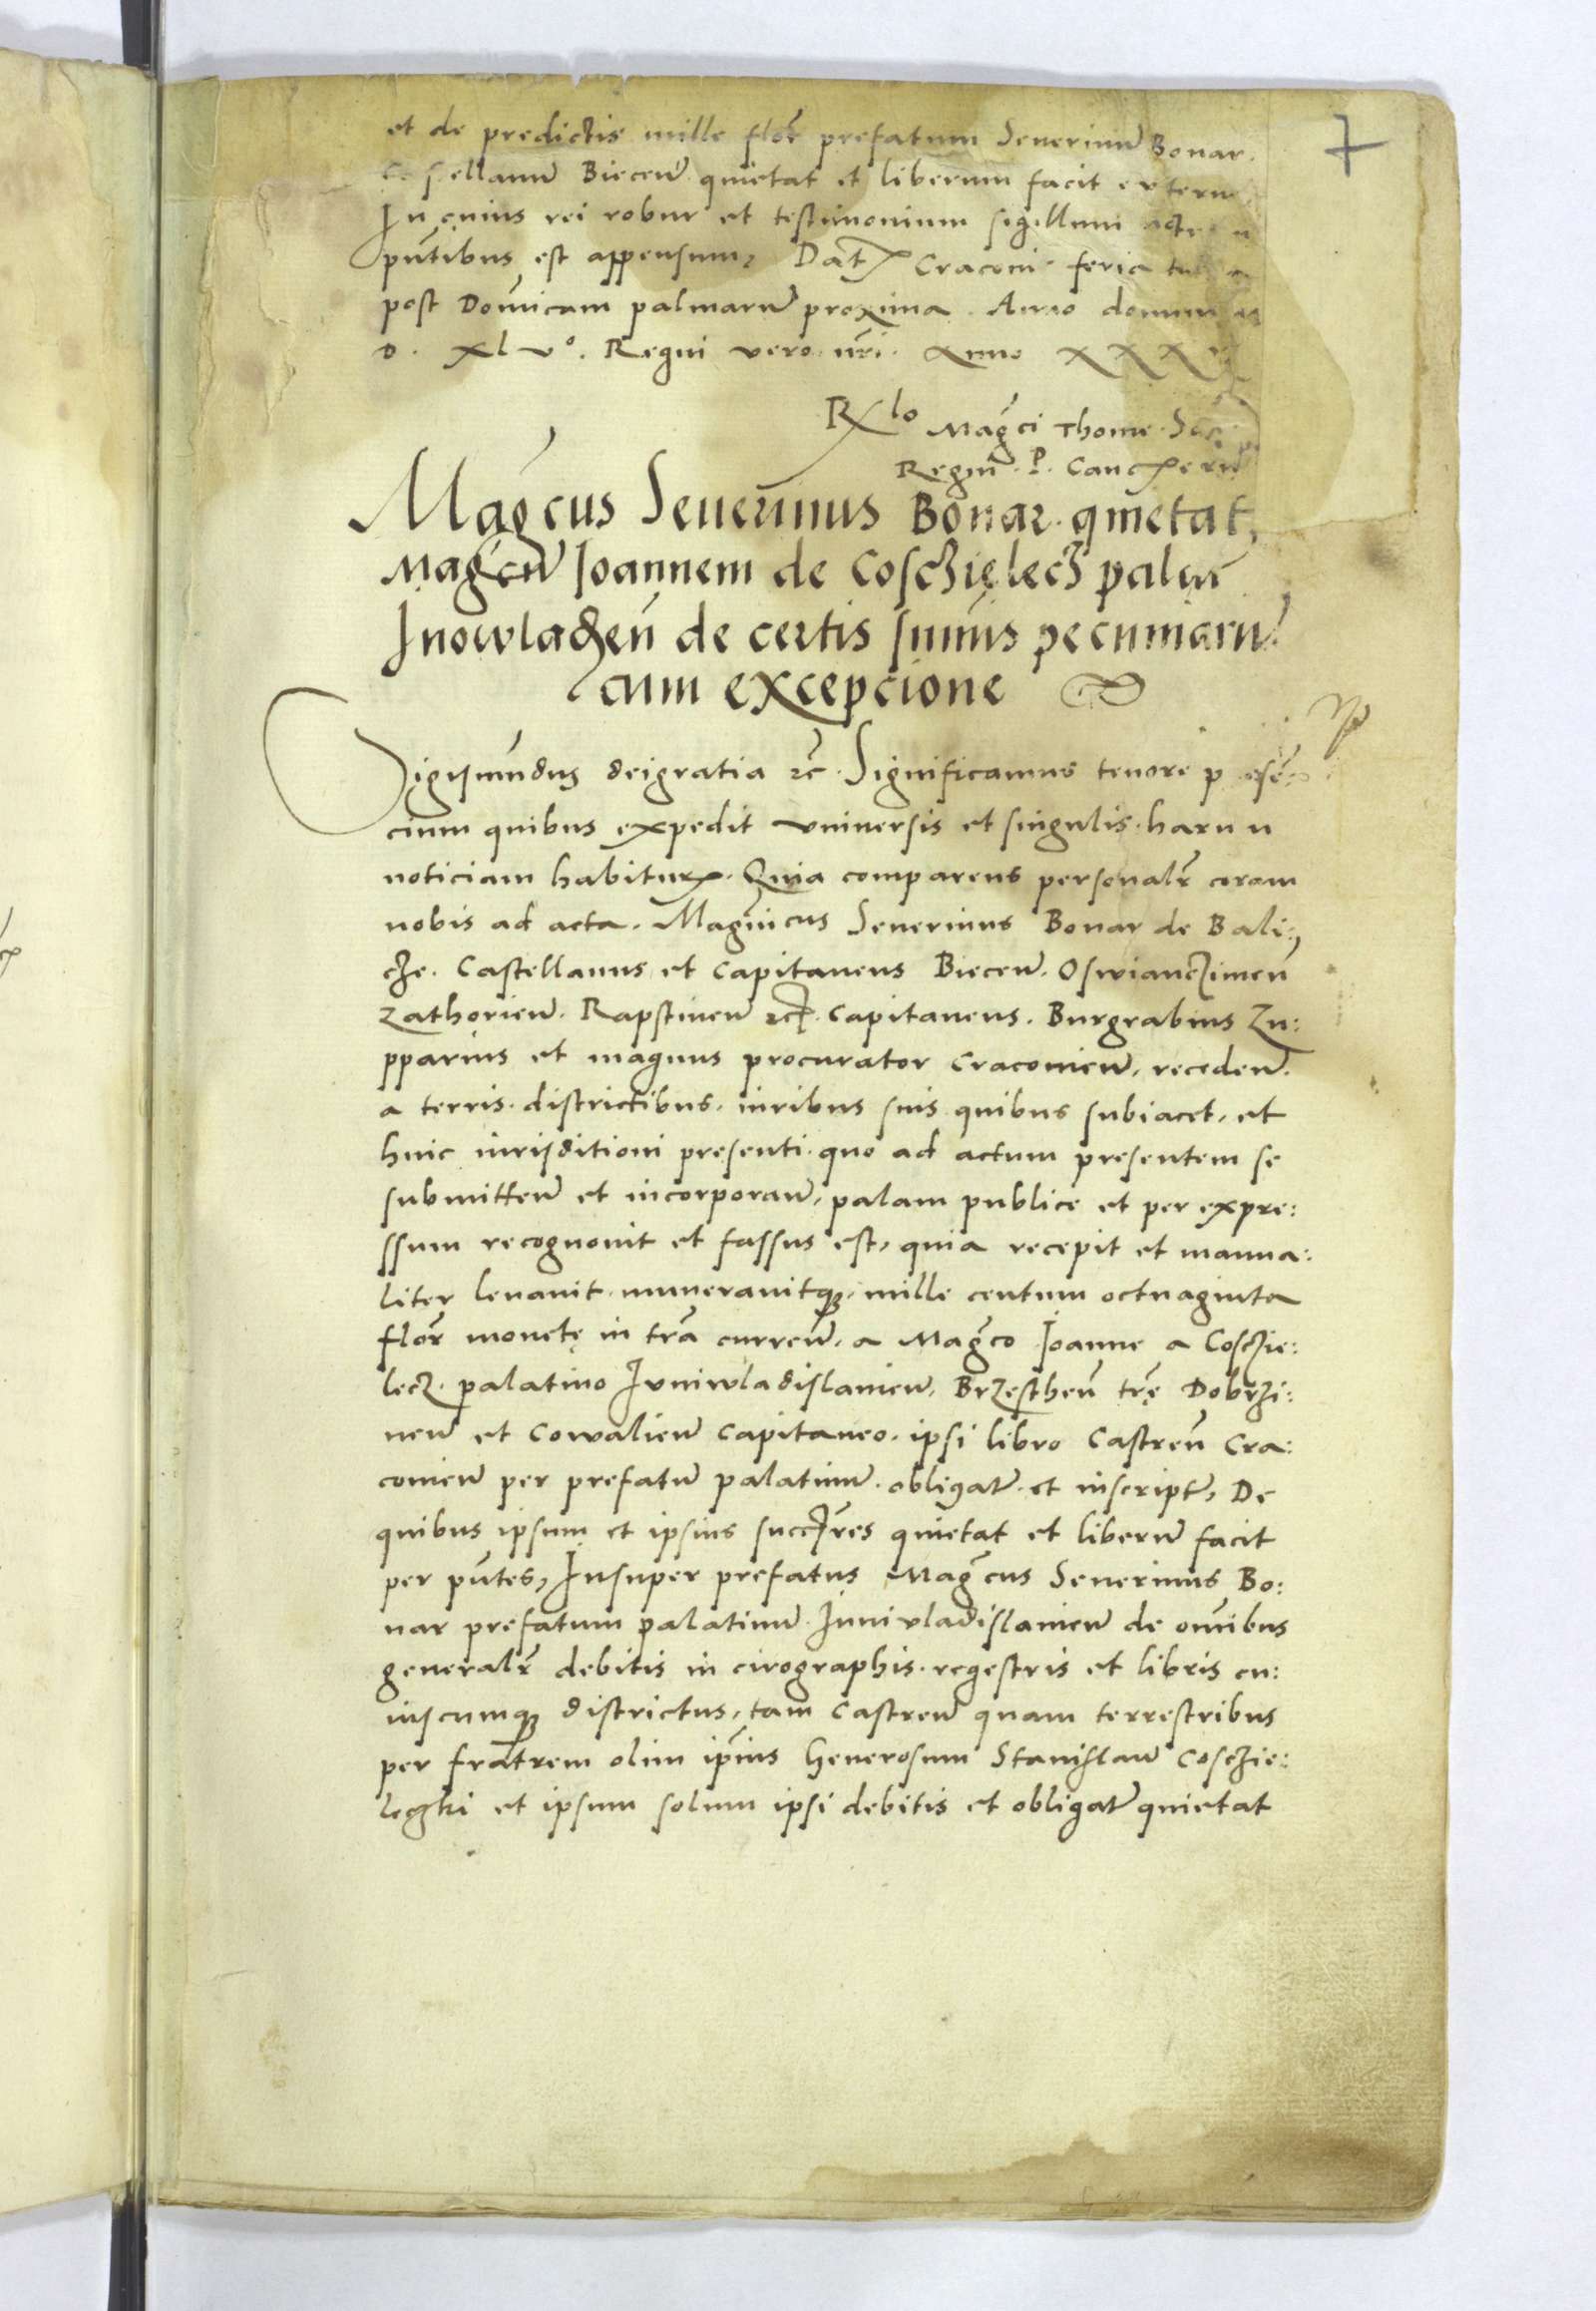 7
et de predictis mille flor̃ prefatum Seuerinũ Bonar.
Biecen̄. quietat et liberum facit
In cuius rei robur et testimonium sigillum
pñtibus est appensum, Dat Craconie feria
post Domĩcam palmarũ proxima. Anno
D. XLvº. Regni vero. nr̃i. Anno
Rlo Magc̃i Thome
Regni P. Canc
Mag̃cus Seuerinus Bonar. quietat,
Mag̃cũ Joannem de Coschielecz palat̃
Inowladzen̄ de certis sum̃is pecuniarũ
cum excepcione
Sigismũdus deigratia zc̃. Significamus tenore p esẽ
cium quibus expedit vniuersis et singulis. haru
noticiam habitur. Quia comparens personalr̃ coram
nobis ad acta. Magñicus Seuerinus Bonar de Bali:
cze. Castellanus et Capitaneus Biecen̄. Oswianczimen̄
Zathorien̄. Rapstinen̄ zc. Capitaneus. Burgrabius Zu:
pparius et magnus procurator Cracouien̄. receden̄.
a terris. districtibus. iuribus suis quibus subiacet, et
huic iurisditioni presenti. quo ad actum presentem se
submitten̄ et incorporan̄, palam publice et per expre:
ssum recognouit et fassus est, quia recepit et manua:
liter leuauit. numerauitq̃. mille centum octuaginta
flor̃ monetę in tr̃a curren̄. a Mag̃co Joanne a Cosczie:
lecz. palatino Iuniwladislauien̄. Brzesthen̄ tr̃ę Dobrzi:
nen̄ et Cowalien̄ Capitaneo. ipsi libro Castren̄ Cra:
couien̄ per prefatũ palatinũ. obligat̃. et inscript̃, De
quibus ipsum et ipsius succr̃es quietat et liberũ facit
per pñtes, Insuper prefatus Mag̃cus Seuerinus Bo:
nar prefatum palatinũ. Iuniuladislauien̄ de om̃ibus
generalr̃ debitis in cirographis. regestris et libris cu:
iuscumq̃ districtus, tam Castren̄ quam terrestribus
per fratrem olim ip̃ius Generosum Stanislaũ Cosczie:
leczki et ipsum solum ipsi debitis et obligat̃ quietat